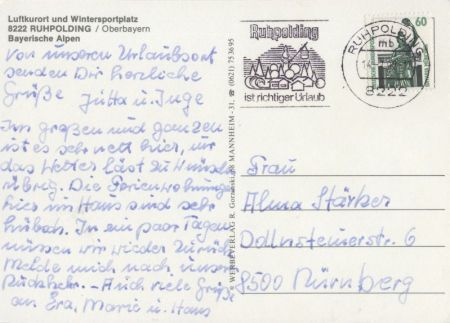 Luftkurort und Wintersportplatz
8222 RUHPOLDING / Oberbayern
Bayerische Alpen
Von unseren Urlaubsort
senden Dir herzliche
Grüße Jutta u. Inge
Im großen und ganzen
ist es sehr nett hier, nur
das Wetter läst zu wünschen
übrig. Die Ferienwohnungen
hier im Haus sind sehr
hübsch. In ein paar Tagen
müssen wir wieder zurück
Melde mich nach unser
Rückkehr. - Auch viele Grüße
an Eva, Marie u. Hans
© WERBEVERLAG R. MANNHEIM - 31, ☎ (0621) 75 36 95
Ruhpolding
ist richtiger Urlaub
RUHPOLDING
mb
8222
60
Frau
Alma Stärker
6
8500 Nürnberg